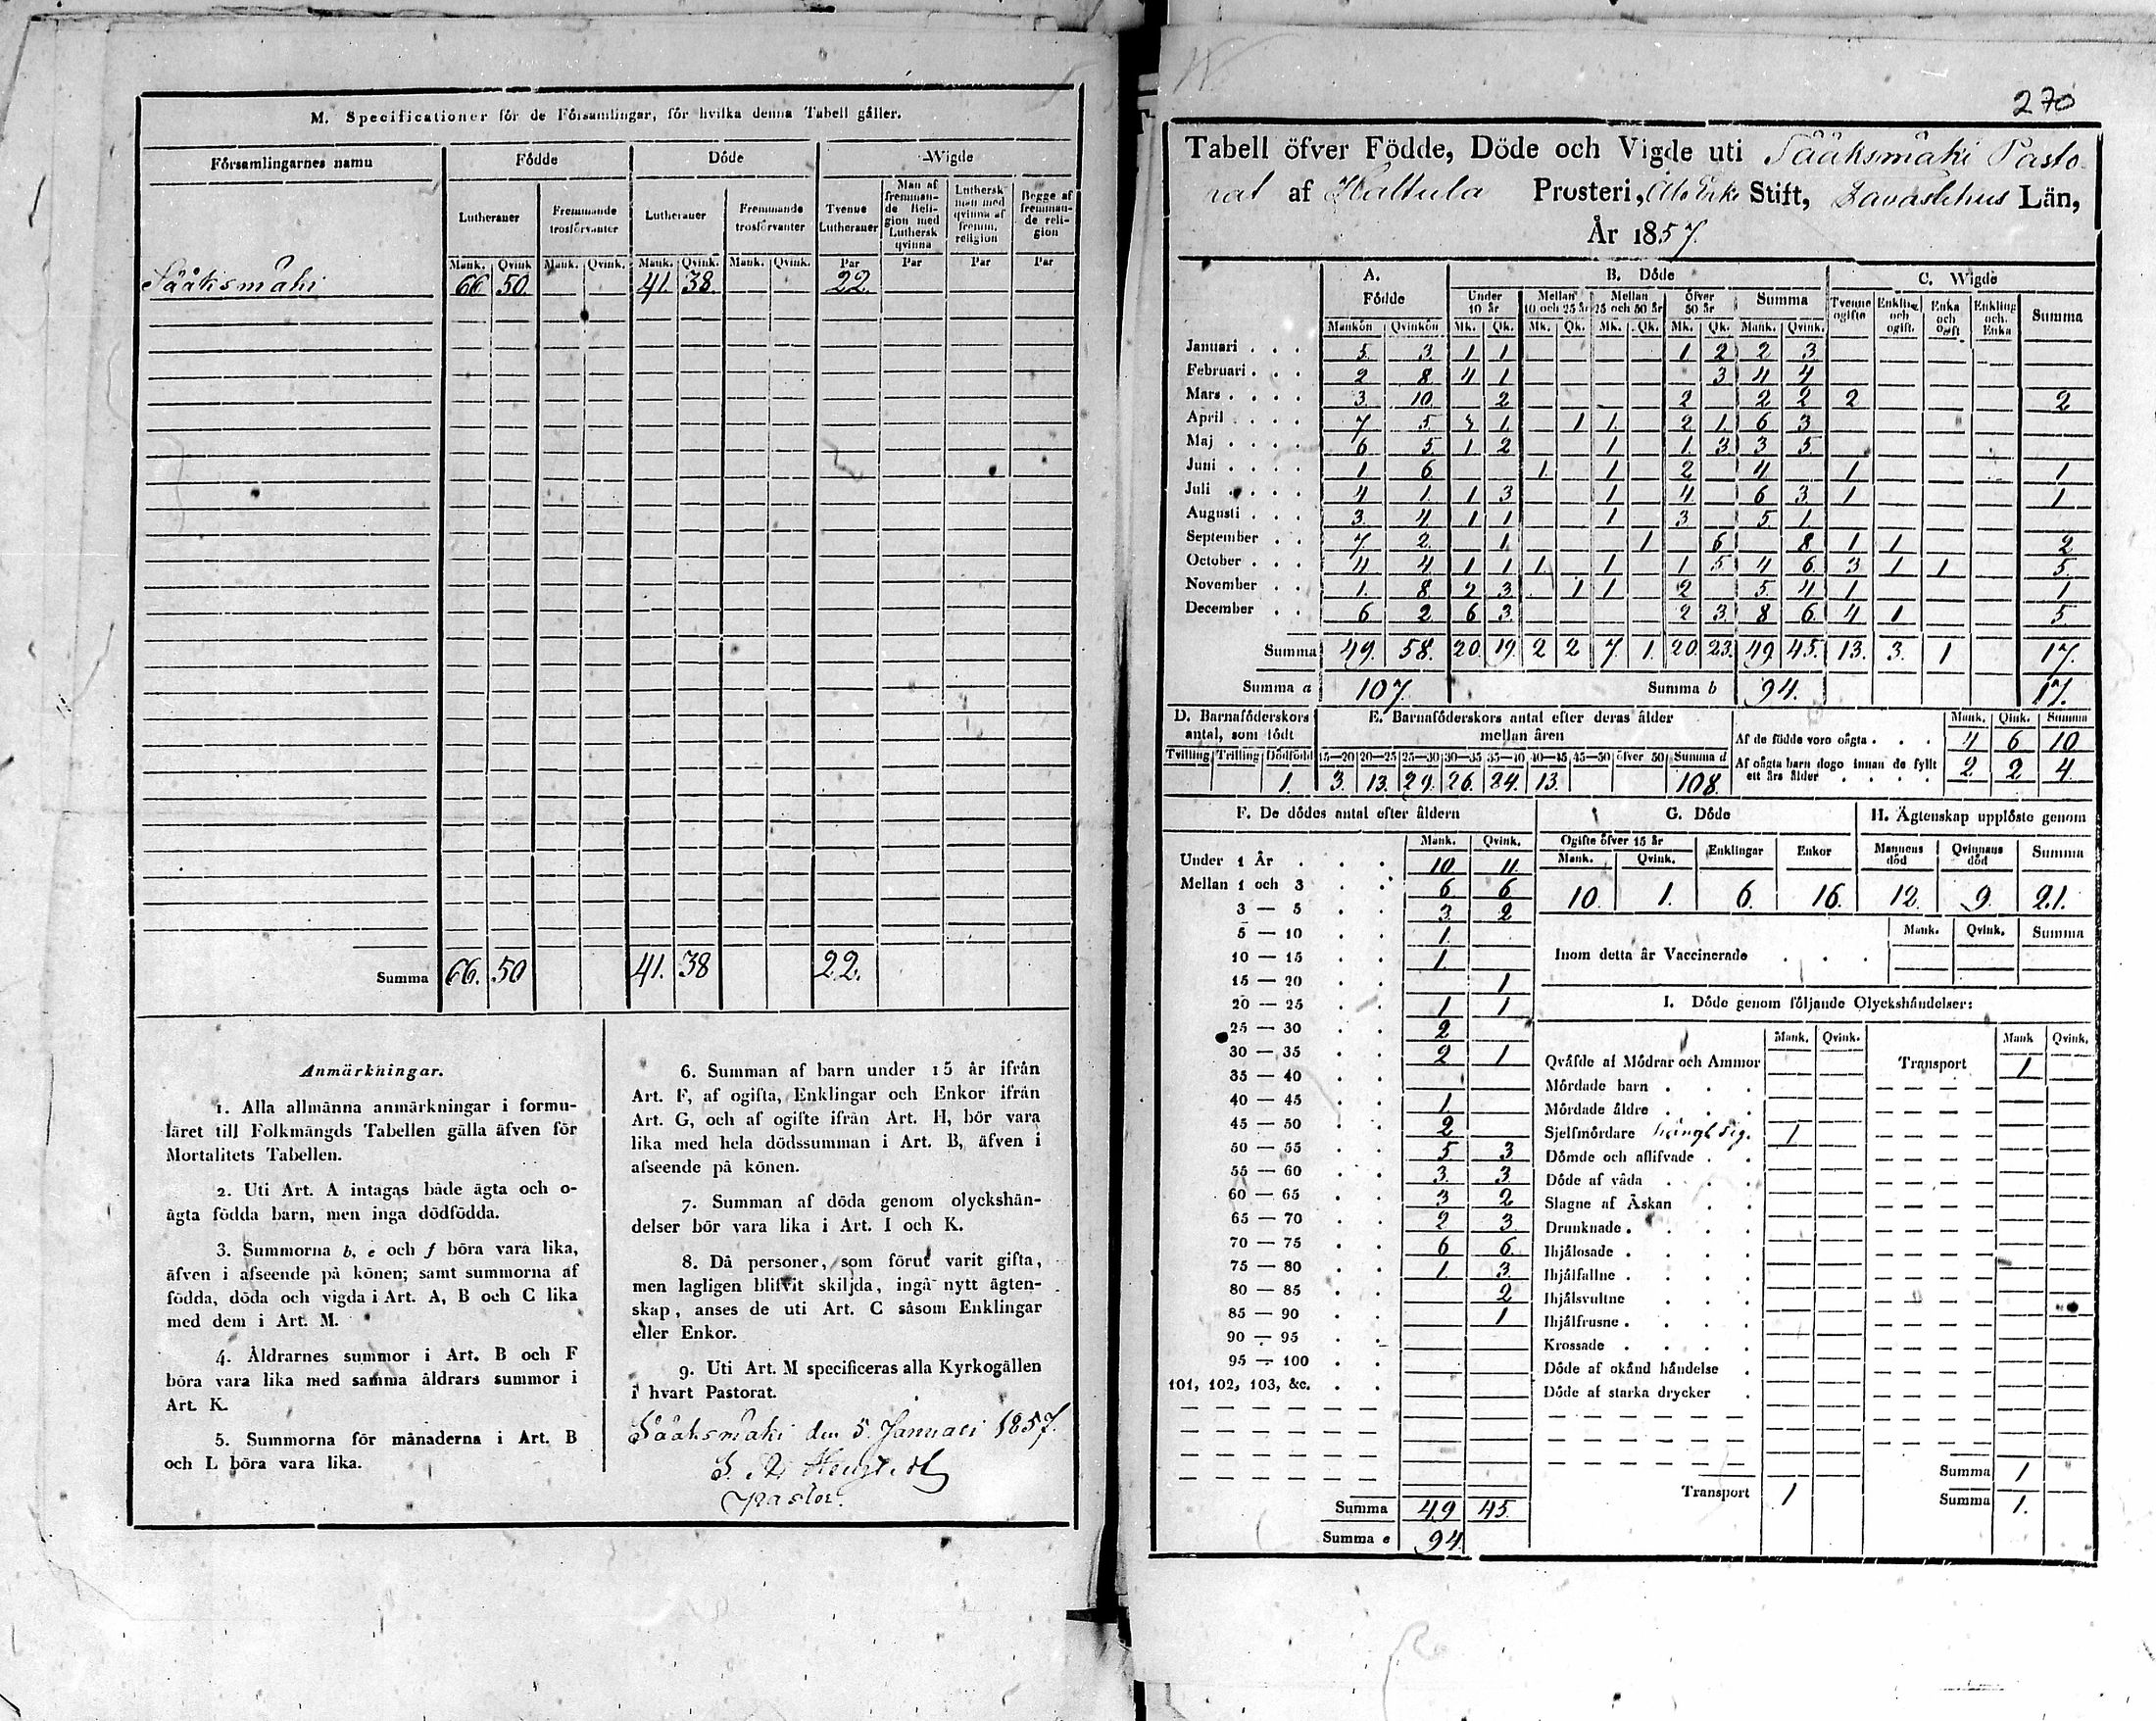 M. Specificationer för de Församlingar, för hvilka denna Tabell gäller.
Församlingarnes namn Födde Döde Wigde
Lutheraner Fremmande trosförvanter Lutheraner Fremmande trosförvanter Tvenne Lutheraner Man af fremmande Religion med Luthersk qvinna Luthersk man med qvinna af fremm. religion Begge af fremmande religion
Mank. Qvink Mank. Qvink. Mank. Qvink. Mank. Qvink. Par Par Par Par
Sääksmäki 66 50. 41. 38. 22.
Summa 66. 50 41. 38 22.
Anmärkningar.
1. Alla allmänna anmärkningar i formu-
läret till Folkmängds Tabellen gälla äfven för
Mortalitets Tabellen.
2. Uti Art. A intagas både ägta och o-
ägta födda barn, men inga dödfödda.
3. Summorna b, e och f böra vara lika,
äfven i afseende på könen; samt summorna af
födda, döda och vigda i Art. A, B och C lika
med dem i Art. M.
4. Åldrarnes summor i Art. B och F
böra vara lika med samma åldrars summor i
Art. K.
5. Summorna för månaderna i Art. B
och L böra vara lika.
6. Summan af barn under 15 år ifrån
Art. F, af ogifta, Enklingar och Enkor ifrån
Art. G, och af ogifte ifrån Art. H, bör vara
lika med hela dödssumman i Art. B, äfven i
afseende på könen.
7. Summan af döda genom olyckshän-
delser bör vara lika i Art. I och K.
8. Då personer, som förut varit gifta,
men lagligen blifvit skiljda, ingå nytt ägten-
skap, anses de uti Art. C såsom Enklingar
eller Enkor.
9. Uti Art. M specificeras alla Kyrkogällen
i hvart Pastorat.
Sääksmäki den 5. Januari 1857.
Pastor.
270
Tabell öfver Födde, Döde och Vigde uti Sääksmäki Pasto-
rat af Hattula Prosteri, Åbo Erke Stift, Tavastehus Län,
År 1857.
A. Födde B. Döde C. Wigde
Under 10 år Mellan 10 och 25 år Mellan 25 och 50 år öfver 50 år Summa Tvenne ogifte Enkling och ogift. Enka och ogift Enkling och Enka Summa
Mankön Qvinkön Mk. Qk. Mk. Qk. Mk. Qk. Mk. Qk. Mank. Qvink.
Januari . . . 5. 3. 1 1 1 2 2 3
Februari . . . 2 8 4 1 3 4 4
Mars . . . . 3. 10. 2 2 2 2 2 2
April . . . . 7 5. 3 1 1 1. 2 1. 6 3
Maj . . . . 6 5. 1 2 1 1. 3 3 5
Juni . . . . 1 6 1. 1 2 4 1 1
Juli . . . . 4 1. 1 3 1 4. 6 3 1 1
Augusti . . . 3. 4. 1 1 1 3 5 1
September . . 7. 2. 1 1 6 8 1 1 2
October . . . 4 4 1 1 1. 1 1 5 4 6 3 1 1 5.
November . . 1. 8 2 3 1 1 2 5 4 1 1
December . . 6 2 6 3 2 3 8 6 4 1 5
Summa 49. 58. 20. 19. 2 2 7. 1. 20. 23. 49. 45. 13. 3. 1 17.
Summa a 107. Summa b 94. 17.
D. Barnaföderskors antal, som födt
Tvilling Trilling Dödfödd
1.
E. Barnaföderskors antal efter deras ålder mellan åren
15—20 20—25 25—30 30—35 35—40 40—45 45—50 öfver 50 Summa d
3. 13. 29. 26. 24. 13. 108.
Mank. Qink. Summa
Af de födde voro oägta . . . 4 6 10
Af oägta barn dogo innan de fyllt ett års ålder 2 2 4
F. De dödes antal efter åldern
Mank. Qvink.
Under 1 År 10 11.
Mellan 1 och 3 6 6
3 — 5 3. 2
5 — 10 1.
10 — 15 1.
15 — 20 1
20 — 25 1 1
25 — 30 2
30 — 35 2 1
35 — 40
40 — 45 1.
45 — 50 2
50 — 55 5 3
55 — 60 3. 3
60 — 65 3 2
65 — 70 2 3
70 — 75 6 6.
75 — 80 1. 3.
80 — 85 2
85 — 90 1
90 — 95
95 — 100
101, 102, 103, &c.
Summa 49 45.
Summa e 94.
G. Döde
Ogifte öfver 15 år Enklingar Enkor
Mank. Qvink.
10. 1. 6. 16.
H. Ägtenskap upplöste genom
Mannens död Qvinnans död Summa
12. 9. 21.
Mank. Qvink. Summa
Inom detta år Vaccinerade . . .
I. Döde genom följande Olyckshändelser:
Mank. Qvink. Mank Qvink.
Qväfde af Mödrar och Ammor Transport 1
Mördade barn
Mördade äldre
Sjelfmördare hängt sig. 1
Dömde och aflifvade
Döde af våda
Slagne af Åskan
Drunknade
Ihjälosade
Ihjälfallne
Ihjälsvultne
Ihjälfrusne
Krossade
Döde af okänd händelse
Döde af starka drycker
Summa 1
Transport 1 Summa 1.